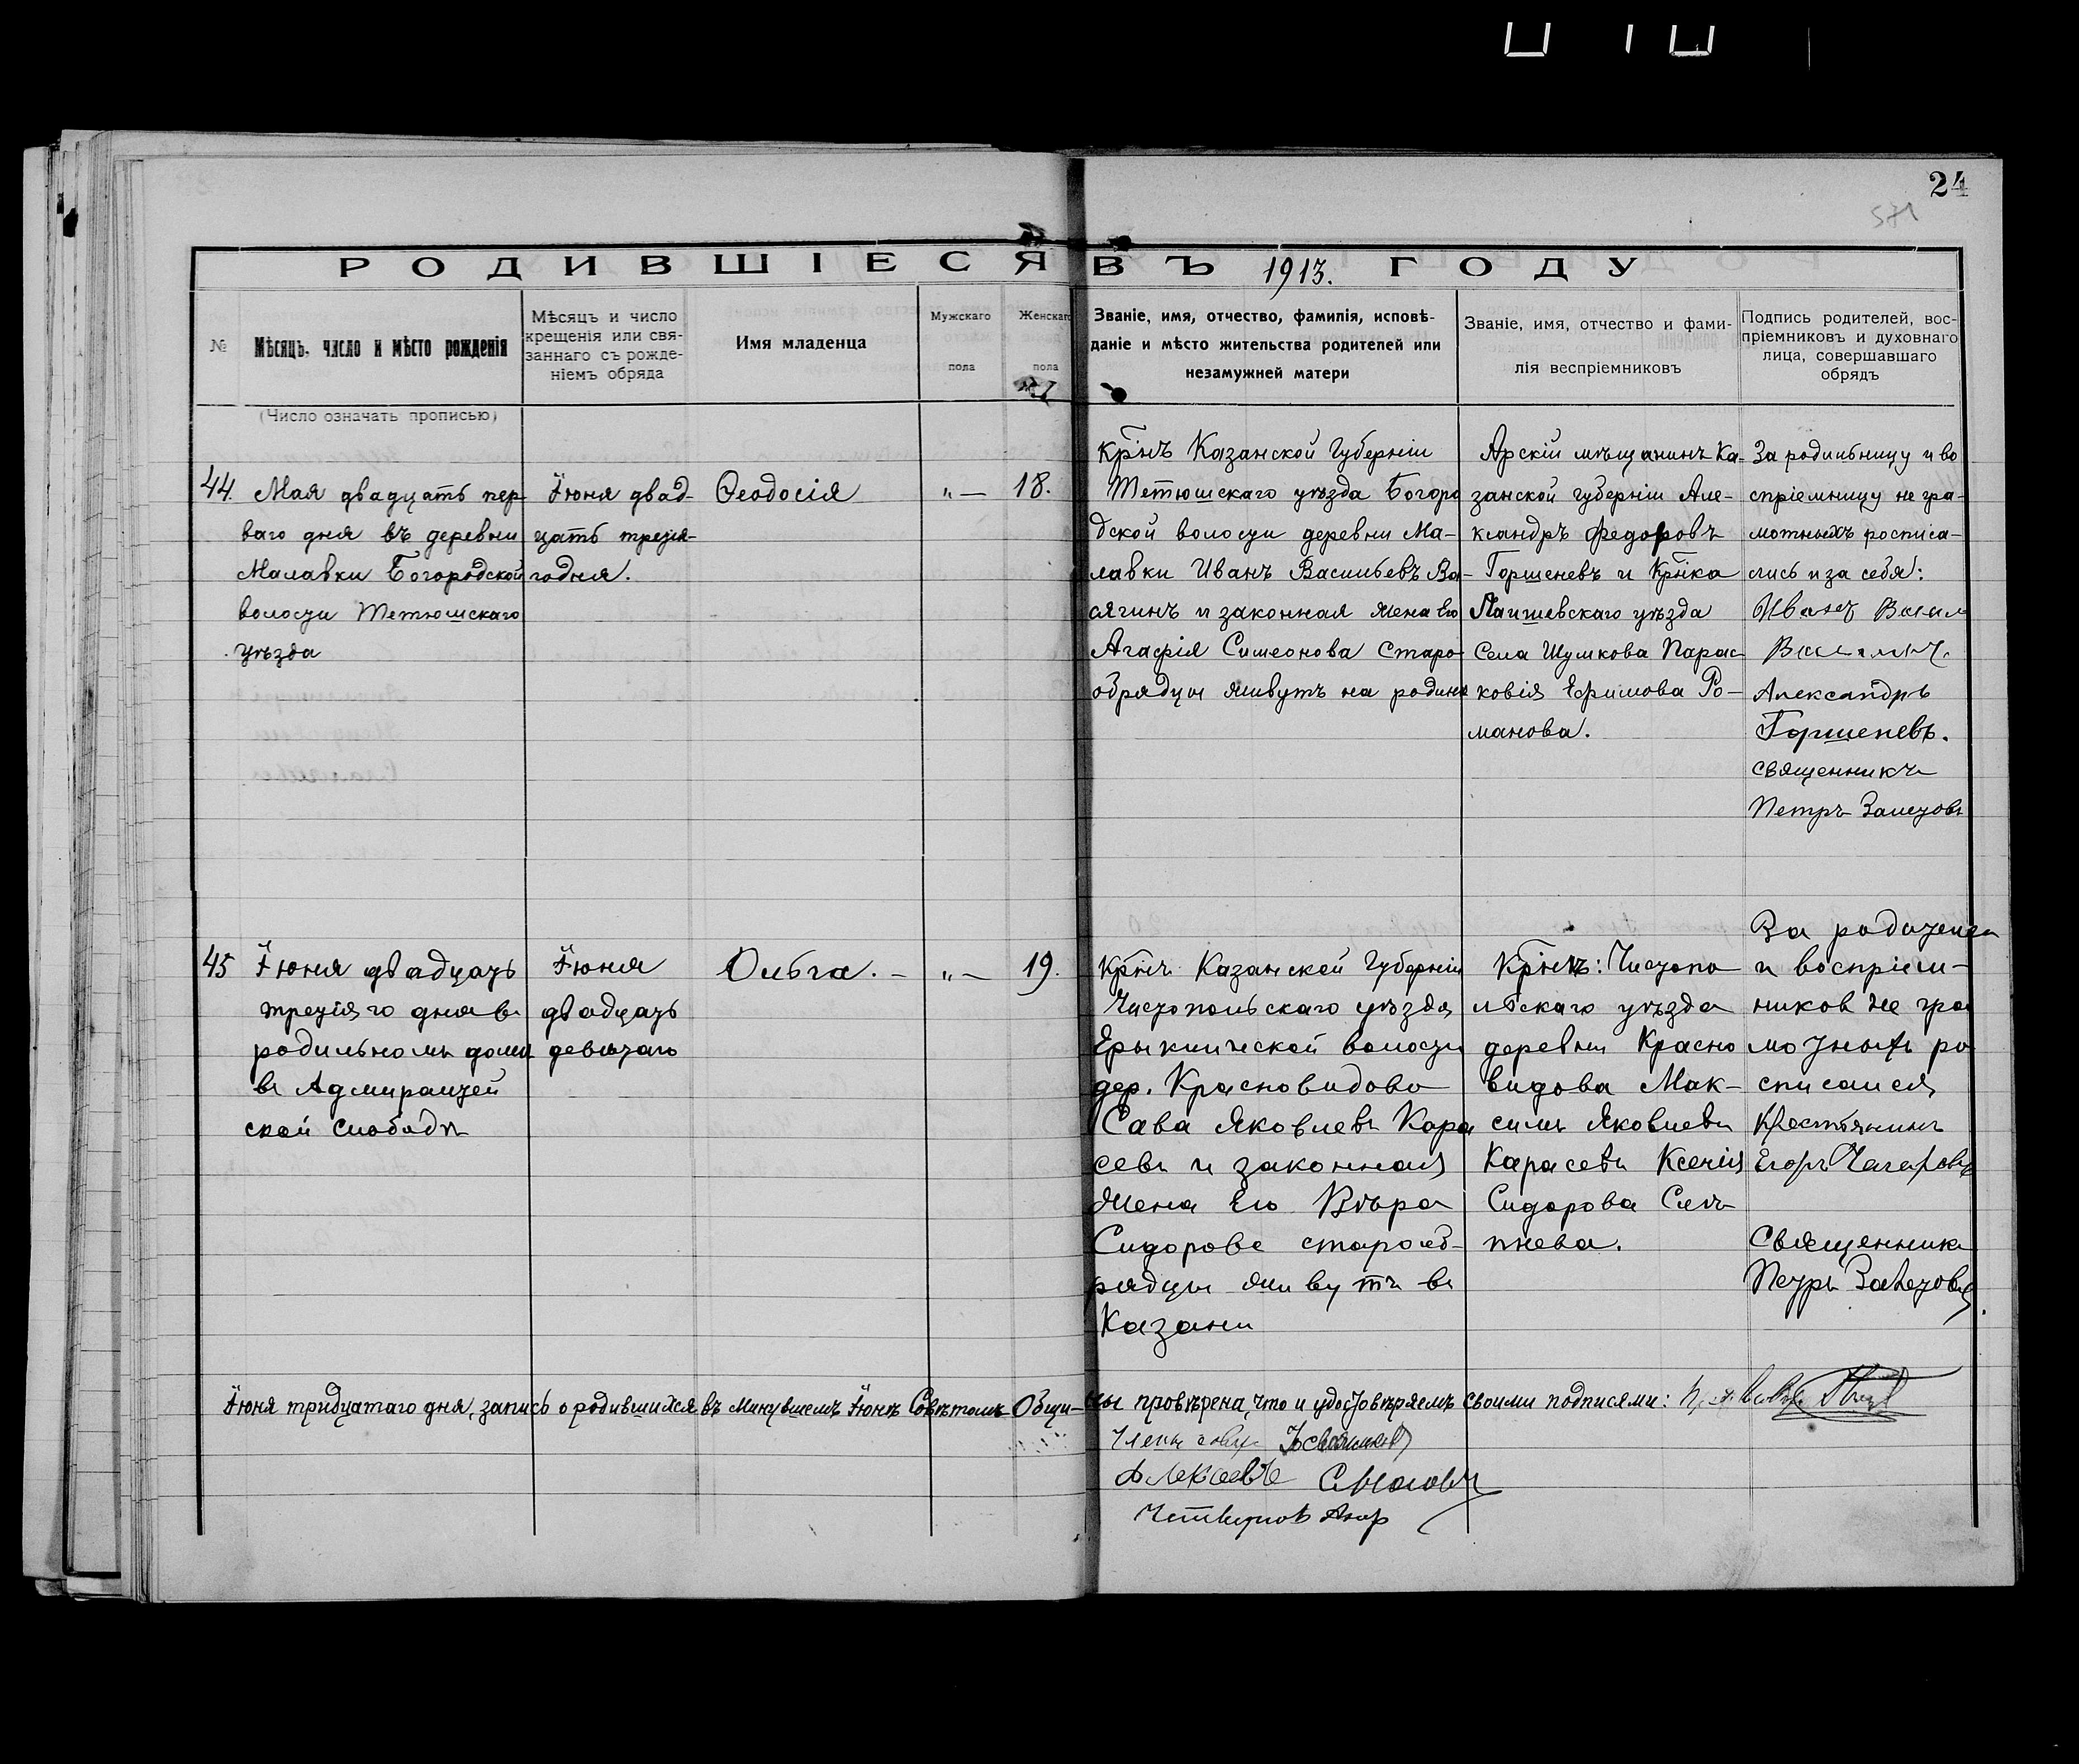 24
571
РОДИВШІЕСЯ ВЪ 1913. ГОДУ
№
Мѣсяцъ, число и мѣсто рожденія
(Число означать прописью)
Мѣсяцъ и число
крещенія или свя-
заннаго съ рожде-
ніемъ обряда
Имя младенца
Мужскаго
пола
Женскаго
пола
Званіе, имя, отчество, фамилія, исповѣ-
даніе и мѣсто жительства родителей или
незамужней матери
Званіе, имя, отчество и фами-
лія веспріемниковъ
Подпись родителей, вос-
пріемниковъ и духовнаго
лица, совершавшаго
обрядъ
44.
Мая двадцать пер-
ваго дня въ деревни
Малавки Богородской
волости Тетюшскаго
уѣзда
Іюня двад-
цать третія-
годня.
Ѳеодосія
"—
18.
крн̃ъ Казанской Губерніи
Тетюшскаго уѣзда Богоро
дской волости деревни Ма-
лавки Иванъ Васильевъ Ва-
сягинъ и законная жена Его
Агафія Симеонова Старо-
обрядцы живутъ на родинѣ
Арскій мѣщанинъ Ка-
занской губерніи Але-
ксандръ Федоровъ
Горшеневъ и Крн̃ка
Лаишевскаго уѣзда
Села Шумкова Парас-
ковія Ефимова Ро-
манова.
За родильницу и во
спріемницу не гра-
мотныхъ росписа-
лись и за себя:
Иванъ
Александръ
Горшеневъ.
священникъ
Петръ Залетовъ
45
Іюня двадцать
третіяго дня в
родильномъ доми
въ Адмиралтей
ской слободѣ
Іюня
двадцать
девятаго
Ольга. -
"—
19.
Крн̃ъ Казанской Губерніи
Чистопольскаго уѣзда
Ерыклинской волости
дер. Красновидово
Сава Яковлевъ Кара
севъ и законная
жена Его Вѣра
Сидорове старооб-
рядцы живутъ въ
Казани
Крн̃ъ: Чистопо
льскаго уѣзда
деревни Красно
видова Мак-
симъ Яковлевъ
Карасевъ Ксенія
Сидорова Слѣ-
пнева.
За родителеи
и воспріем-
ников не гра
мотныхъ ро
списался
Крестьянинъ
Егоръ
Священникъ
Петръ Залетовъ.
Іюня тридцатаго дня, запись о родившихся въ минувшемъ Іюнѣ Совѣтомъ Общи-ны провѣрена, что и удостовѣряемъ своими подписями:
Члены
Алексеевъ